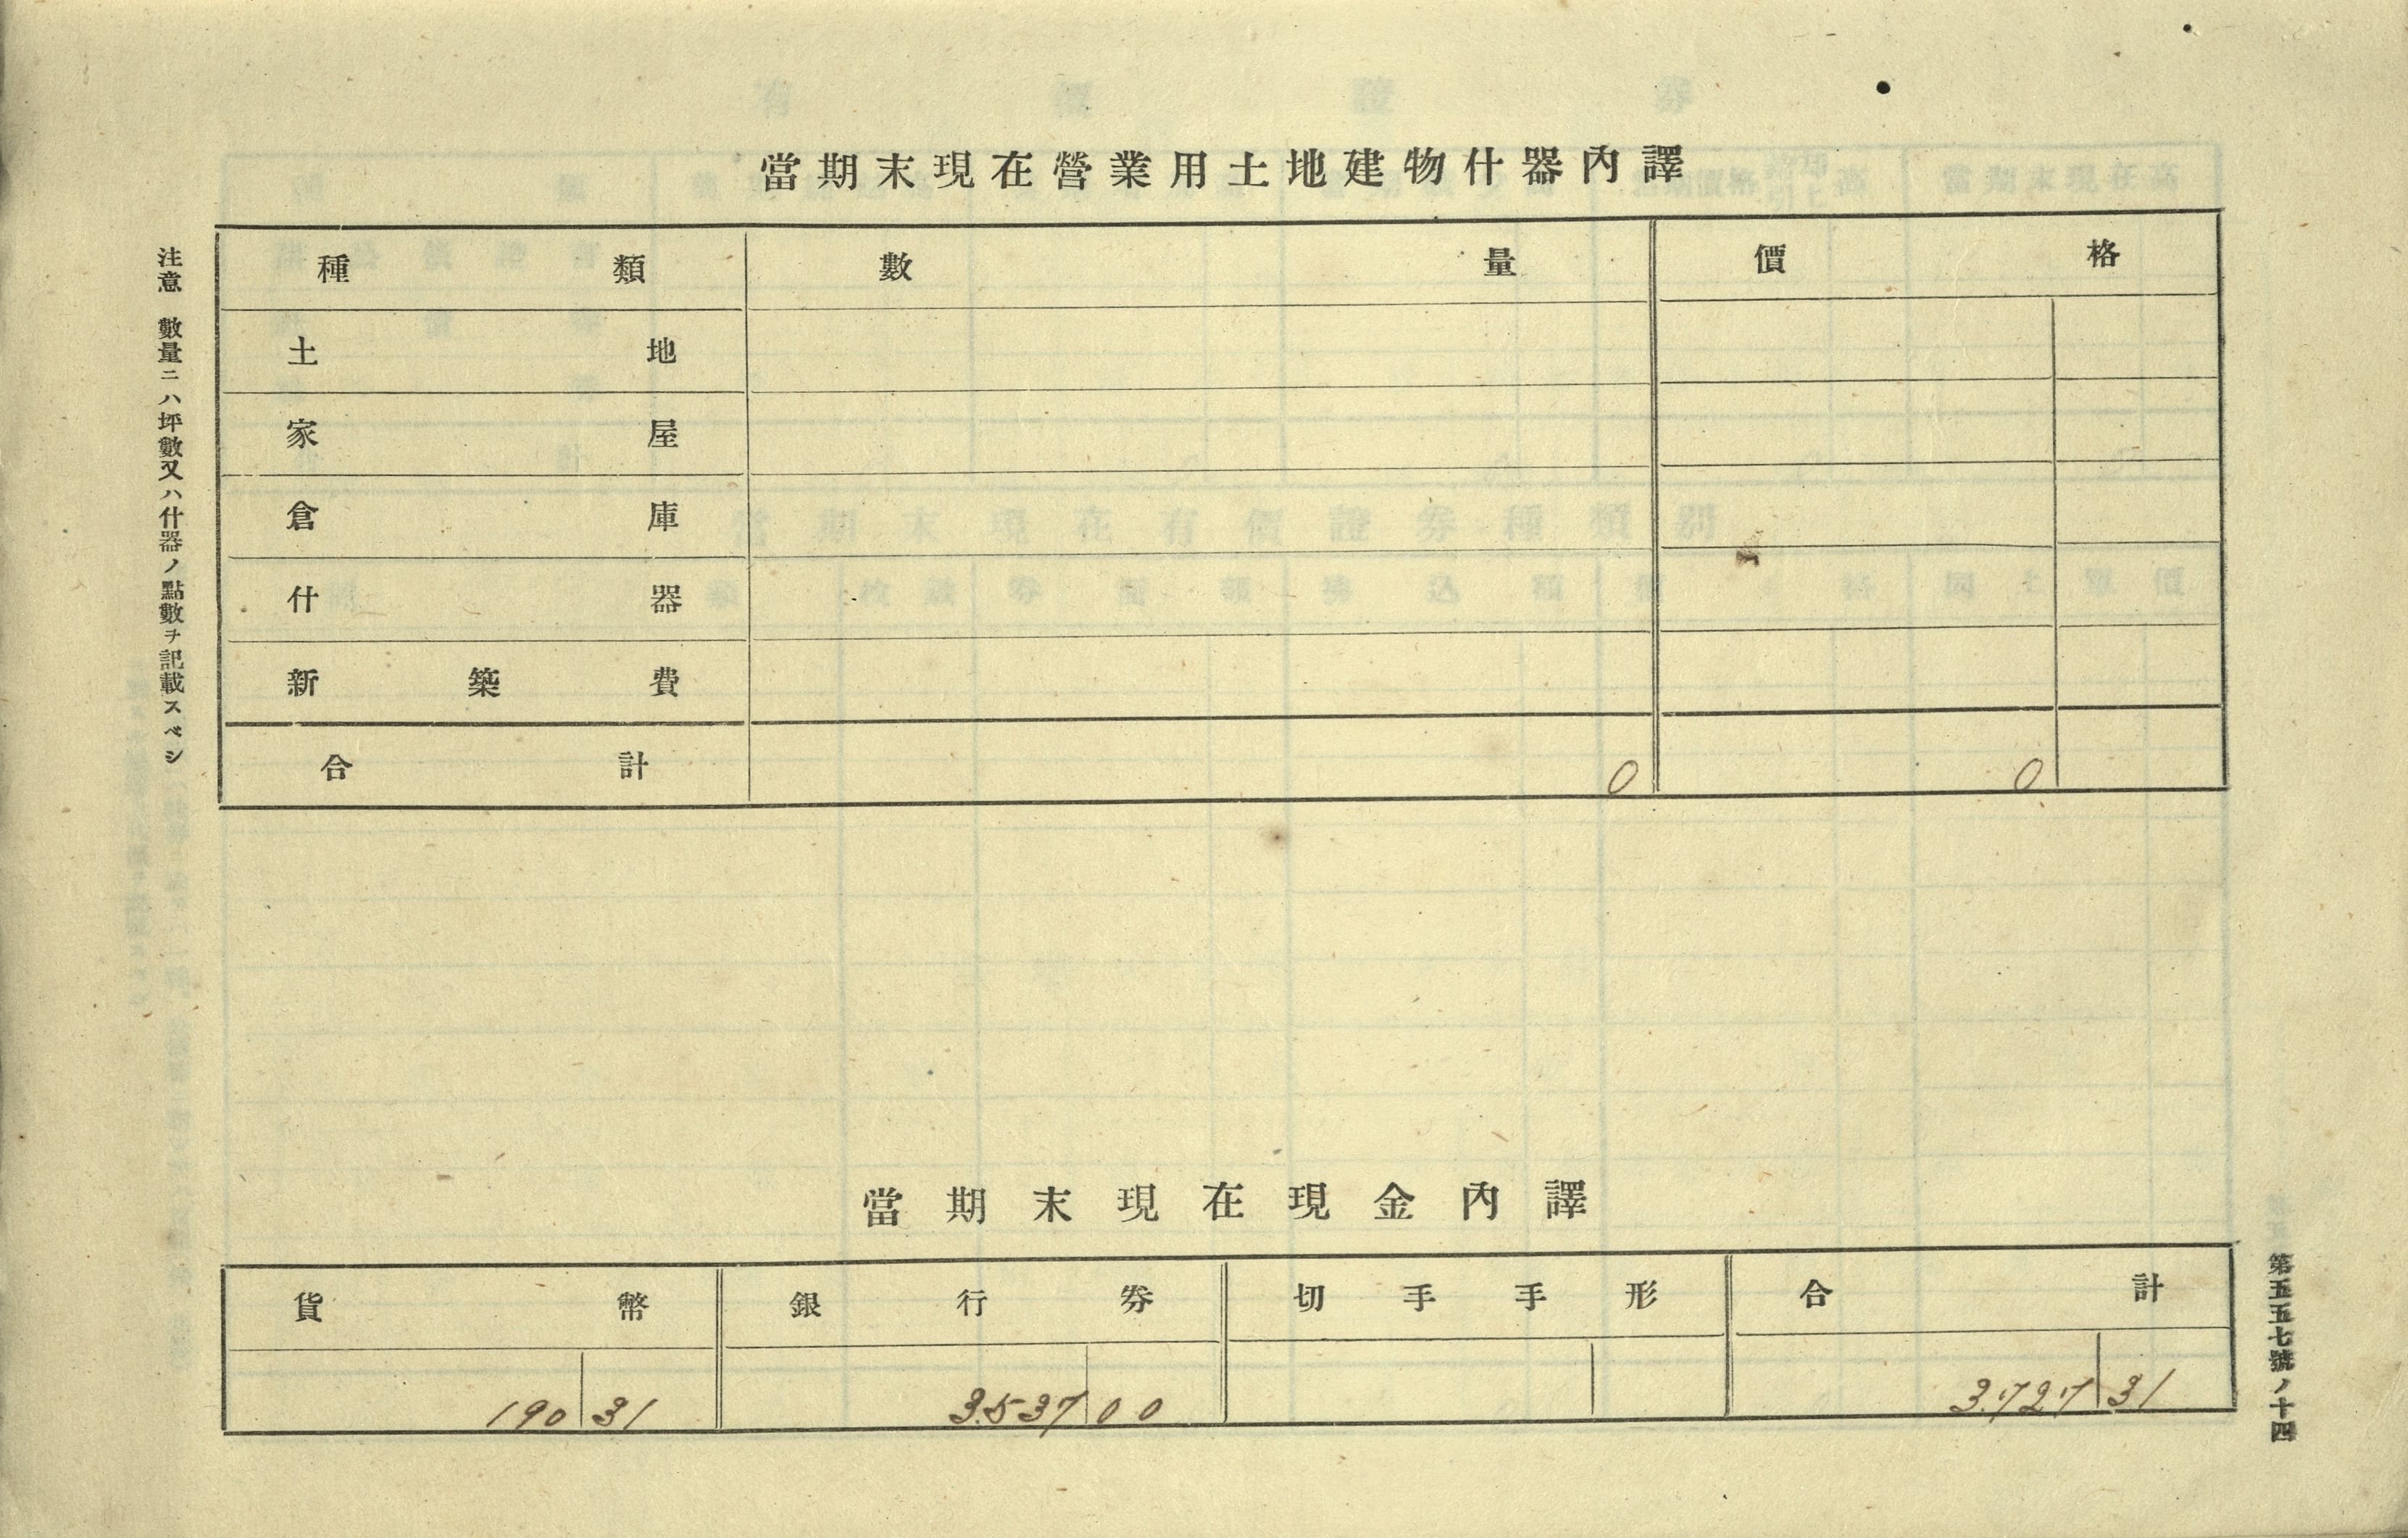 當期末現在營業用土地建物什器內譯
種類 數量 價格
土地
家屋
倉庫
什器
新築費
合計 0 0
注意 數量ニハ坪數又ハ什器ノ點數ヲ記載スベシ
當期末現在現金內譯
貨幣 銀行券 切手手形 合計
190 31 3.537 00 3.727 31
第五五七號ノ十四